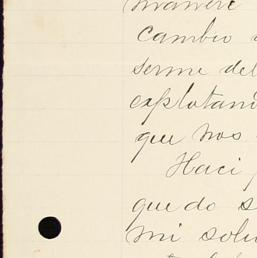 manere
cambio
serme del
explotan
que nos
Haci
quedo s
mi solu